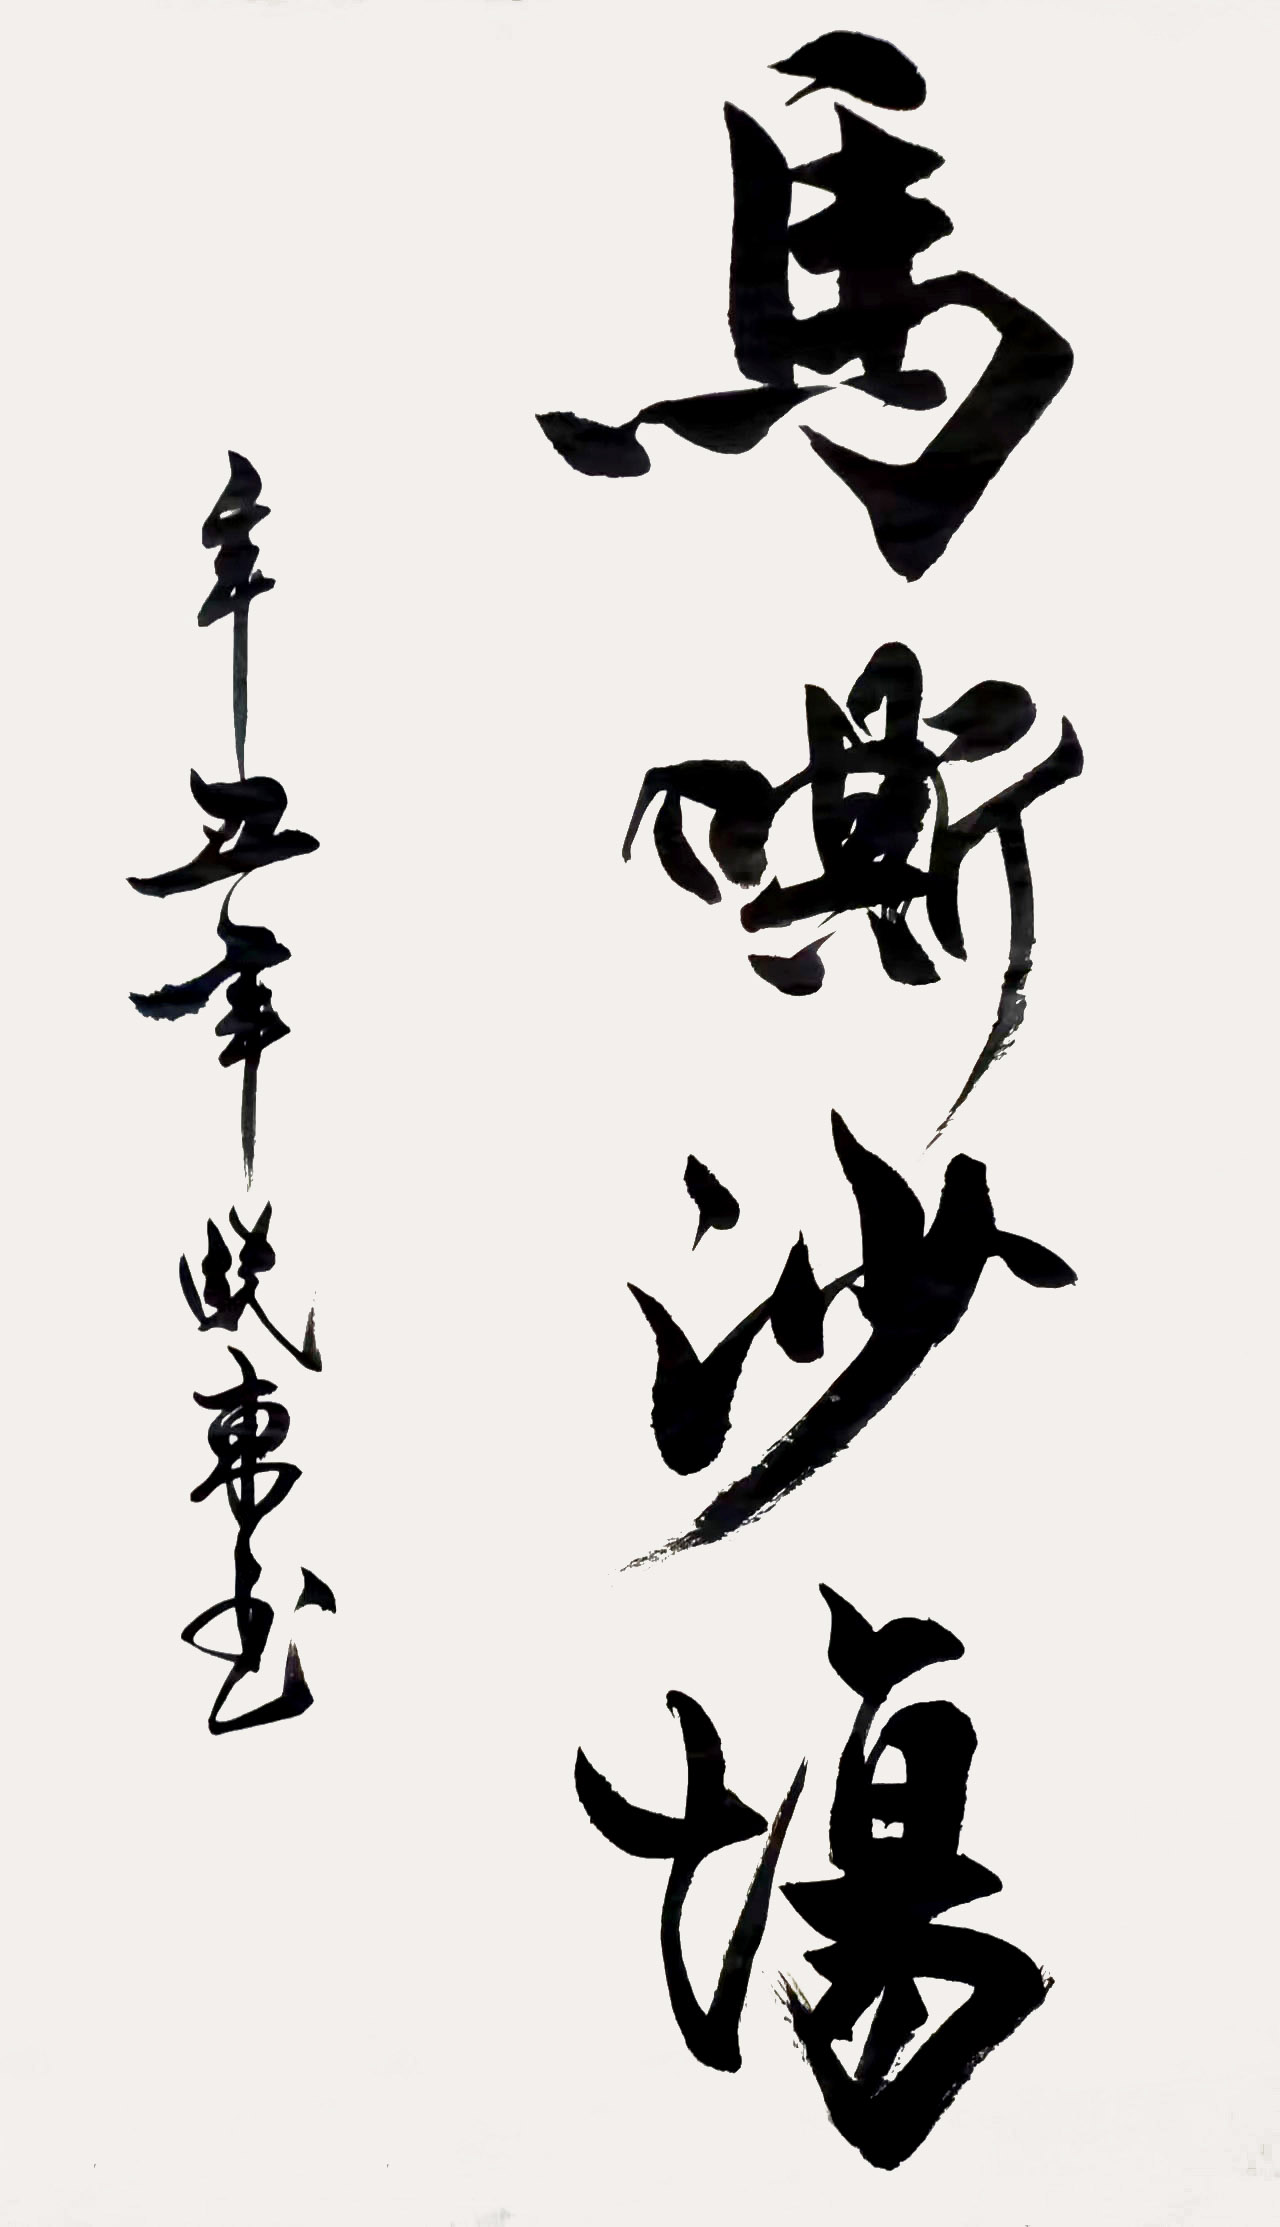 馬嘶沙場
辛丑年 東書